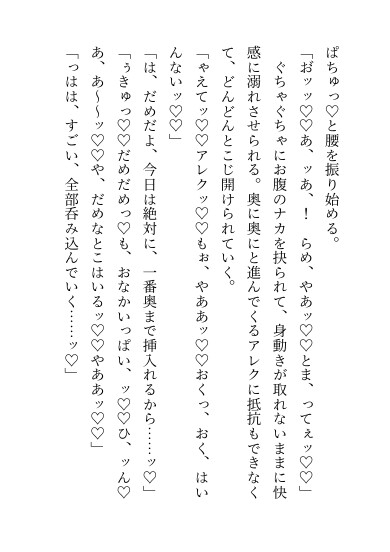 ぱちゅっ♡と腰を振り始める。
「お゛ッッ♡♡あ、ッあ、！　らめ、やあッ♡♡とま、ってぇッ♡♡」
　ぐちゃぐちゃにお腹のナカを抉られて、身動きが取れないままに快
感に溺れさせられる。奥に奥にと進んでくるアレクに抵抗もできなく
て、どんどんとこじ開けられていく。
「ゃえてッ♡♡アレクッ♡♡もぉ、やああッ♡♡おくっ、おく、はい
んないッ♡♡」
「は、だめだよ、今日は絶対に、一番奥まで挿入れるから……ッ♡」
「ぅきゅっ♡♡だめだめっ♡も、おなかいっぱい、ッ♡♡ひ、ッん♡
あ、あ～～ッ♡♡や、だめなとこはいるッ♡♡やああッ♡♡」
「っはは、すごい、全部呑み込んでいく……ッ♡」